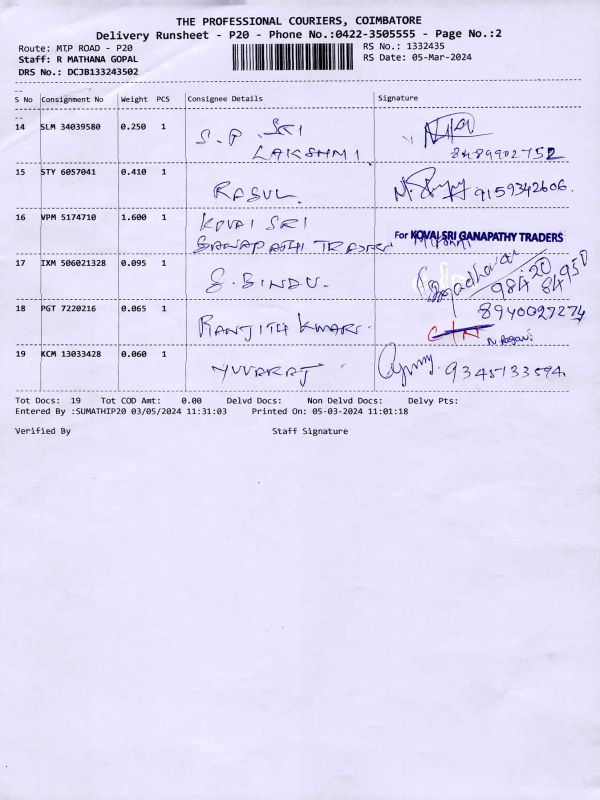 THE PROFESSIONAL COURIERS, COIMBATORE
Delivery Runsheet - P20 - Phone No.:0422-3505555 - Page No.:2
Route: MTP ROAD - P20 RS No.: 1332435
Staff: R MATHANA GOPAL RS Date: 05-Mar-2024
DRS No.: DCJB133243502
S No Consignment No Weight PCS Consignee Details Signature
14 SLM 34039580 0.250 1 S.P. SRI
LAKSHMI 8489902752
15 STY 6057041 0.410 1
RASUL 9159342606.
16 VPM 5174710 1.600 1 KOVAI SRI
GANAPATHI TRADERS For KOVAI SRI GANAPATHY TRADERS
17 IXM 506021328 0.095 1 S. BINDU. 98420 84950
18 PGT 7220216 0.065 1 8940027274
RANJITH KUMAR.
19 KCM 13033428 0.060 1
YUVARAJ 9345133594
Tot Docs: 19 Tot COD Amt: 0.00 Delvd Docs: Non Delvd Docs: Delvy Pts:
Entered By :SUMATHIP20 03/05/2024 11:31:03 Printed On: 05-03-2024 11:01:18
Verified By Staff Signature